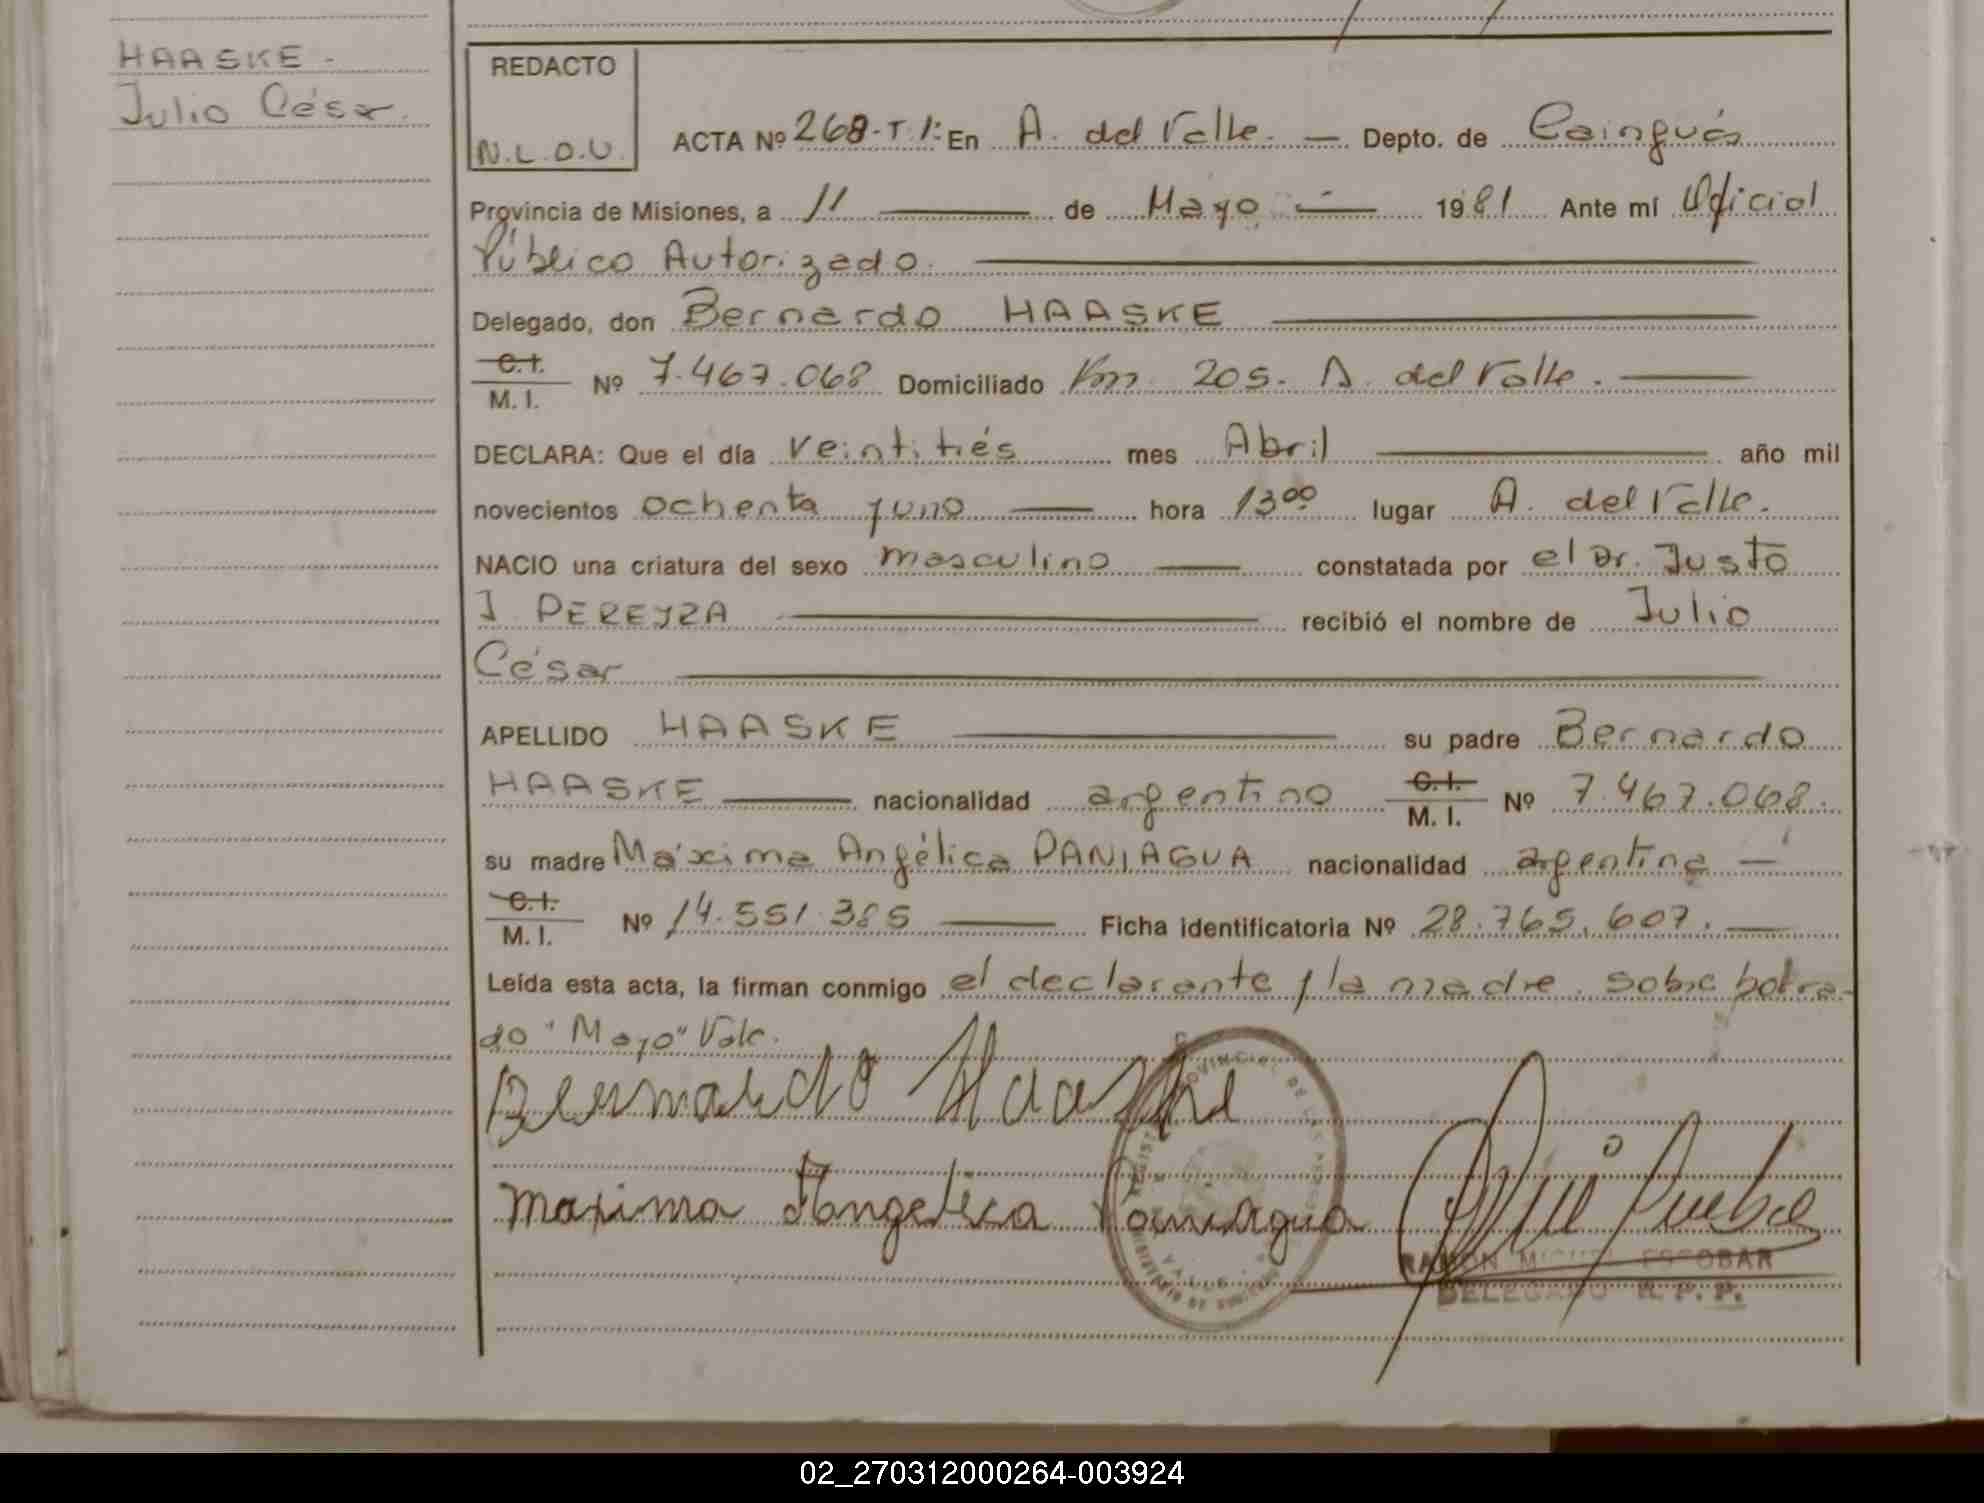 HAASKE -
Julio César.
REDACTO
N.L.D.U.
ACTA Nº 268-T.1: En A. del Valle. — Depto. de Cainguás
Provincia de Misiones, a 11 — de Mayo — 1981 Ante mí Oficial
Público Autorizado.
Delegado, don Bernardo HAASKE
C.I.
M. I. Nº 7.467.068 Domiciliado Km. 205. A. del Valle.
DECLARA: Que el día veintitiés mes Abril año mil
novecientos ochenta y uno hora 13⁰⁰ lugar A. del Valle.
NACIO una criatura del sexo masculino constatada por el Dr. Justo
J PEREYRA recibió el nombre de Julio
César
APELLIDO HAASKE su padre Bernardo
HAASKE nacionalidad argentino C.I. M. I. Nº 7.467.068.
su madre Máxima Angélica PANIAGUA nacionalidad argentina —
C.I.
M. I. Nº 14.551.385 Ficha identificatoria Nº 28.765.607.
Leída esta acta, la firman conmigo el declarante y la madre. sobre borra-
do "Mayo" Vale.
Bernardo Haaske
Maxima Angelica Paniagua
RAMON MIGUEL ESCOBAR
DELEGADO R. P. P.
02_270312000264-003924